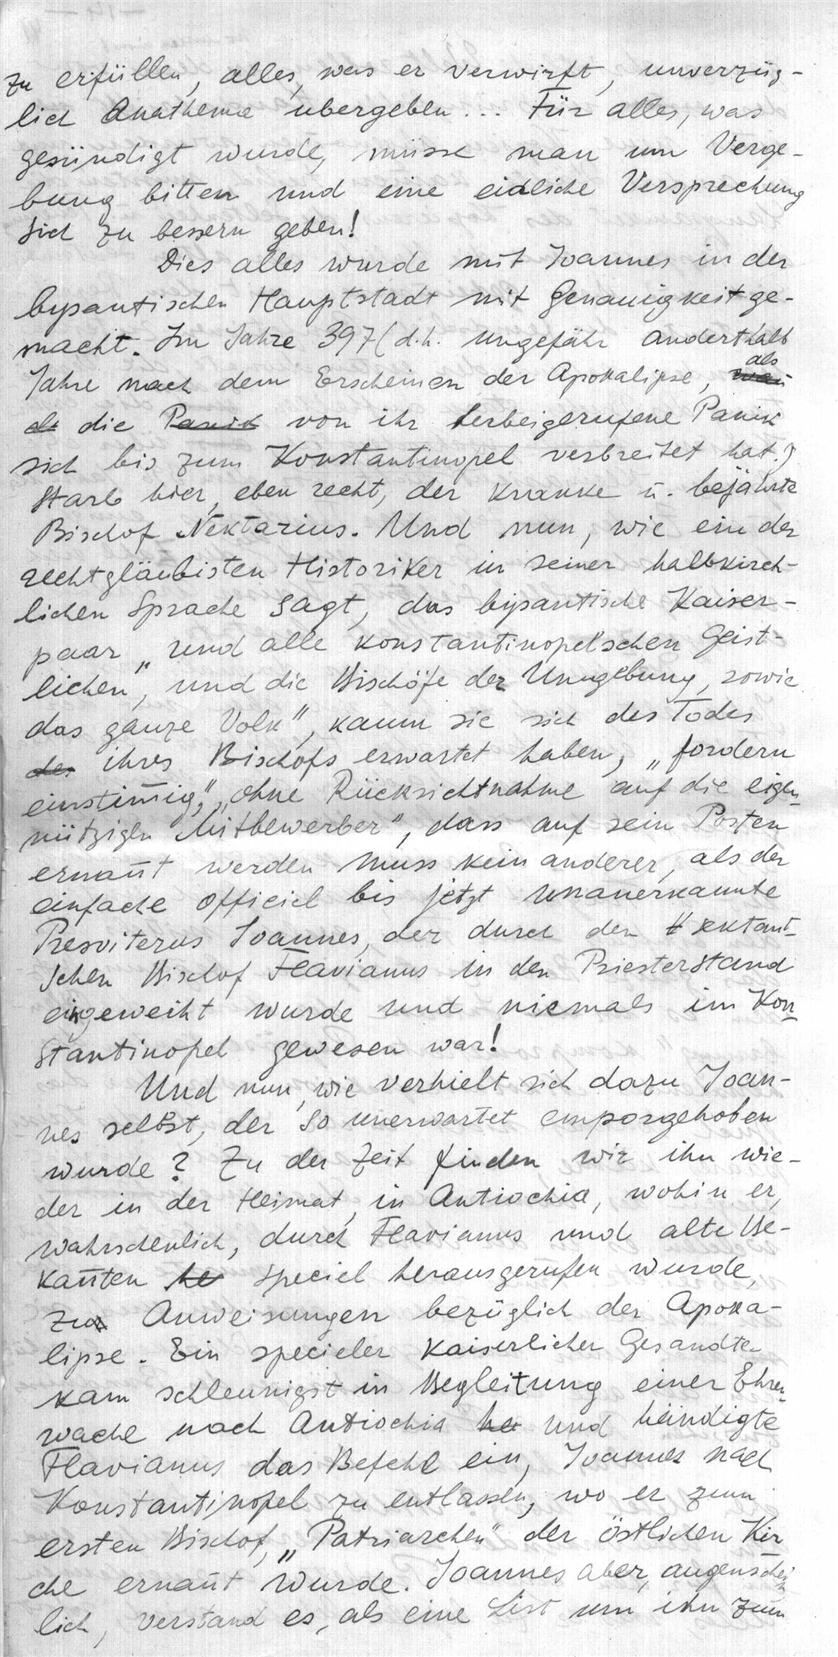 zu erfüllen, alles, was er verwirft, unverzüg-
lich Anathema übergeben... Für alles, was
gesündigt wurde, müsse man um Verge-
bung bitten und eine eidliche Versprechung
sich zu bessern geben!
Dies alles wurde mit Joannes in der
bysantischen Hauptstadt mit Genauigkeit ge-
macht. Im Jahre 397 (d.h. ungefähr anderthalb
Jahre nach dem Erscheinen der Apokalipse, als
die Panik von ihr herbeigerufene Panik
sich bis zum Konstantinopel verbreitet hat.)
starb hier, eben recht, der kranke u. bejahrte
Bischof Nektarius. Und nun, wie ein der
rechtgläubisten Historiker in seiner halbkirch-
lichen Sprache sagt, das bysantische Kaiser-
paar „und alle konstantinopelschen Geist-
lichen", und die Bischöfe der Umgebung, sowie
das ganze Volk", kaum sie sich des Todes
des ihres Bischofs erwartet haben, „fordern
einstimig," „ohne Rücksichtnahme auf die eigen-
nützigen Mitbewerber", dass auf sein Posten
ernannt werden muss kein anderer, als der
einfache officiel bis jetzt unanerkannte
Presviterus Joannes, der durch den
schen Bischof Flavianus in den Priesterstand
eingeweiht wurde und niemals im Kon-
stantinopel gewesen war!
Und nun, wie verhielt sich dazu Joan-
nes selbst, der so unerwartet emporgehoben
wurde? Zu der Zeit finden wir ihn wie-
der in der Heimat, in Antiochia, wohin er,
wahrschenlich, durch Flavianus und alte Be-
kannten speciel herausgerufen wurde,
zur Anweisungen bezüglich der Apoka-
lipse. Ein specieler kaiserlicher Gesandte
kam schleunigst in Begleitung einer Ehren-
wache nach Antiochia und händigte
Flavianus das Befehl ein, Joannes nach
Konstantinopel zu entlassen, wo er zum
ersten Bischof, „Patriarchen" der östlichen Kir
che ernannt wurde. Joannes aber, augenschein
lich, verstand es, als eine List um ihn zum